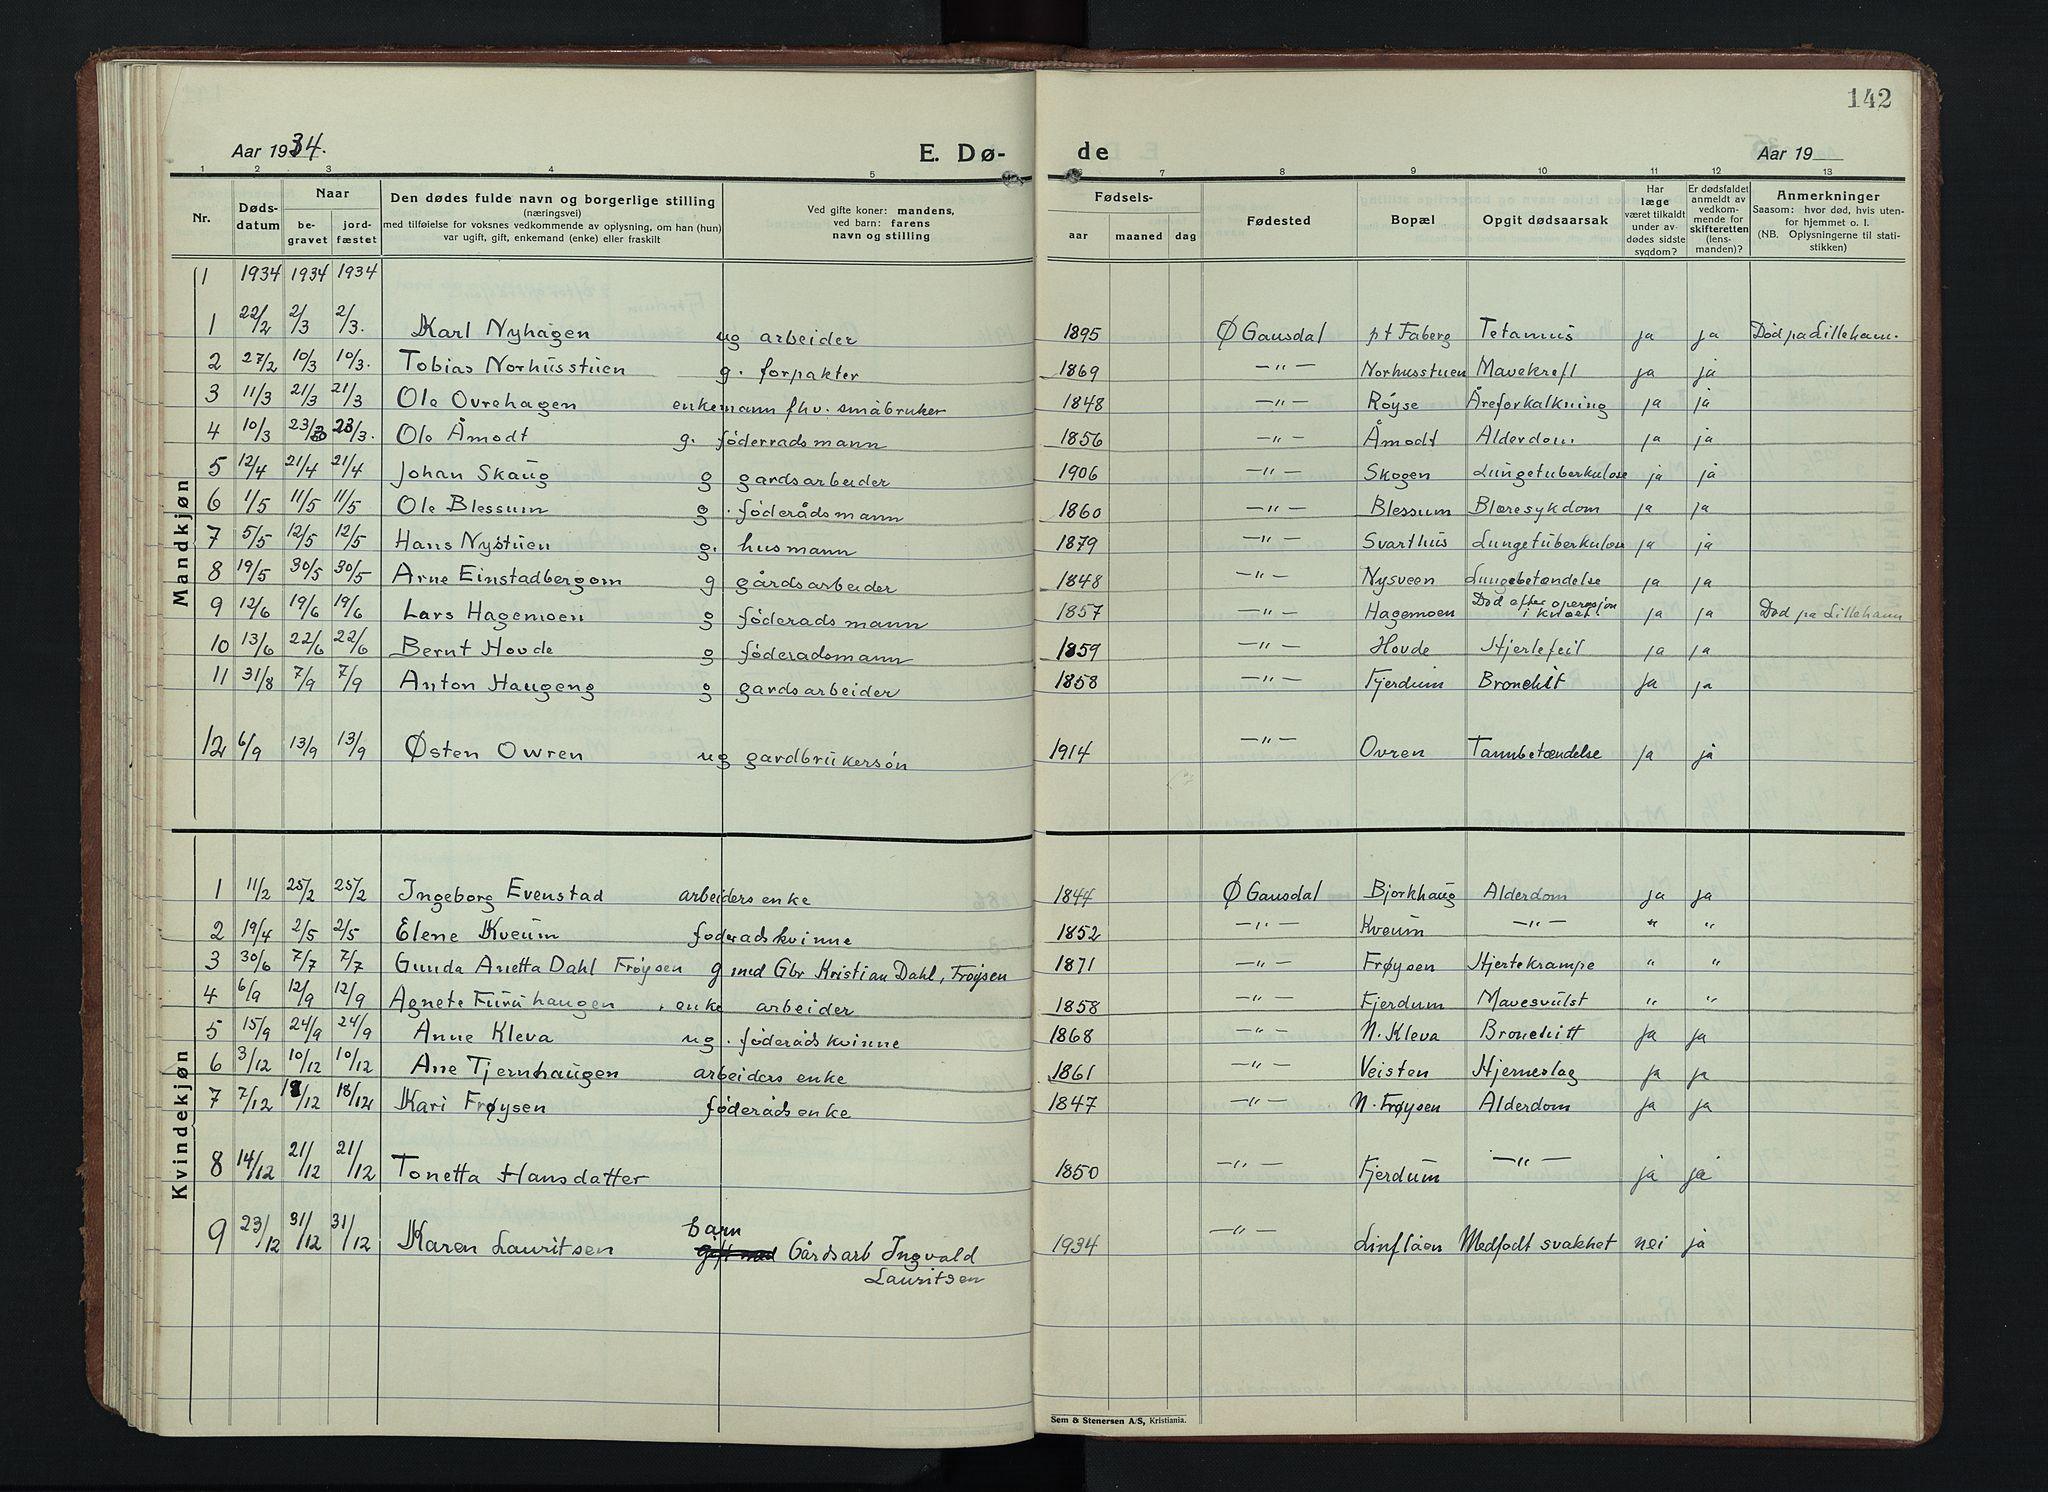 142
Aar 1934.
E. Dø-
de
Aar 19
1 2 3 4 5 6 7 8 9 10 11 12 13
Nr.
Døds-
datum
Naar
be-
gravet
jord-
fæstet
Den dødes fulde navn og borgerlige stilling
(næringsvei)
med tilføielse for voksnes vedkommende av oplysning, om han (hun)
var ugift, gift, enkemand (enke) eller fraskilt
Ved gifte koner: mandens,
ved barn: farens
navn og stilling
Fødsels-
aar maaned dag
Fødested
Bopæl
Opgit dødsaarsak
Har
læge
været tilkaldt
under av-
dødes sidste
sygdom?
Er dødsfaldet
anmeldt av
vedkom-
mende for
skifteretten
(lens-
manden)?
Anmerkninger
Saasom: hvor død, hvis uten-
for hjemmet o. l.
(NB. Oplysningerne til stati-
stikken)
Mandkjøn
1 1934 1934 1934
1 22/2 2/3 2/3. Karl Nyhagen ug arbeider 1895 Ø Gausdal pt Faberg Tetanus ja ja Død pa Lilleham.
2 27/2 10/3 10/3. Tobias Norhusstuen g. forpakter 1869 —"— Norhusstuen Mavekreft ja ja
3 11/3 21/3 21/3 Ole Ovrehagen enkemann fhv. småbruker 1848 —"— Røyse Åreforkalkning ja ja
4 10/3 23/3 23/3. Ole Åmodt g. føderradsmann 1856 —"— Åmodt Alderdom ja ja
5 12/4 21/4 21/4 Johan Skaug g gardsarbeider 1906 —"— Skogen Lungetuberkulose ja ja
6 1/5 11/5 11/5 Ole Blessum g. føderådsmann 1860 —"— Blessum Blæresykdom ja ja
7 5/5 12/5 12/5 Hans Nystuen g. husmann 1879 —"— Svarthus Lungetuberkulose ja ja
8 19/5 30/5 30/5 Arne Einstadbergom g gårdsarbeider 1848 —"— Nysveen Lungebetændelse ja ja
9 12/6 19/6 19/6 Lars Hagemoen g føderadsmann 1857 —"— Hagemoen Død efter operasjon i knæet. ja ja Død pa Lillehamm
10 13/6 22/6 22/6 Bernt Hovde g føderadsmann 1859 —"— Hovde Hjertefeil ja ja
11 31/8 7/9 7/9 Anton Haugeng g gardsarbeider 1858 —"— Fjerdum Bronchit ja ja
12 6/9 13/9 13/9 Østen Owren ug gardbrukersøn 1914 —"— Ovren Tannbetændelse ja ja
Kvindekjøn
1 11/2 25/2 25/2 Ingeborg Evenstad arbeiders enke 1844 Ø Gausdal Bjorkhaug Alderdom ja ja
2 19/4 2/5 2/5 Elene Kveum foderadskvinne 1852 —"— Kveum —"— " "
3 30/6 7/7 7/7 Gunda Anetta Dahl Frøysen g med Gbr Kristian Dahl, Frøysen 1871 —"— Frøysen Hjertekrampe " "
4 6/9 12/9 12/9 Agnete Furuhaugen enke arbeider 1858 —"— Fjerdum Mavesvulst " "
5 15/9 24/9 24/9 Anne Kleva ug. føderådskvinne 1868 —"— N. Kleva Bronchitt ja ja
6 3/12 10/12 10/12 Ane Tjernhaugen arbeiders enke 1861 —"— Veisten Hjerneslag ja ja
7 7/12 18/12 18/12 Kari Frøysen føderådsenke 1847 —"— N. Frøysen Alderdom ja ja
8 14/12 21/12 21/12 Tonetta Hansdatter 1850 —"— Fjerdum —"— ja ja
9 23/12 31/12 31/12 Karen Lauritsen barn Gift med Gårdsarb Ingvald 1934 —"— Linflåen Medfødt svakhet nei ja
Lauritsen
Sem & Stenersen A/S, Kristiania.